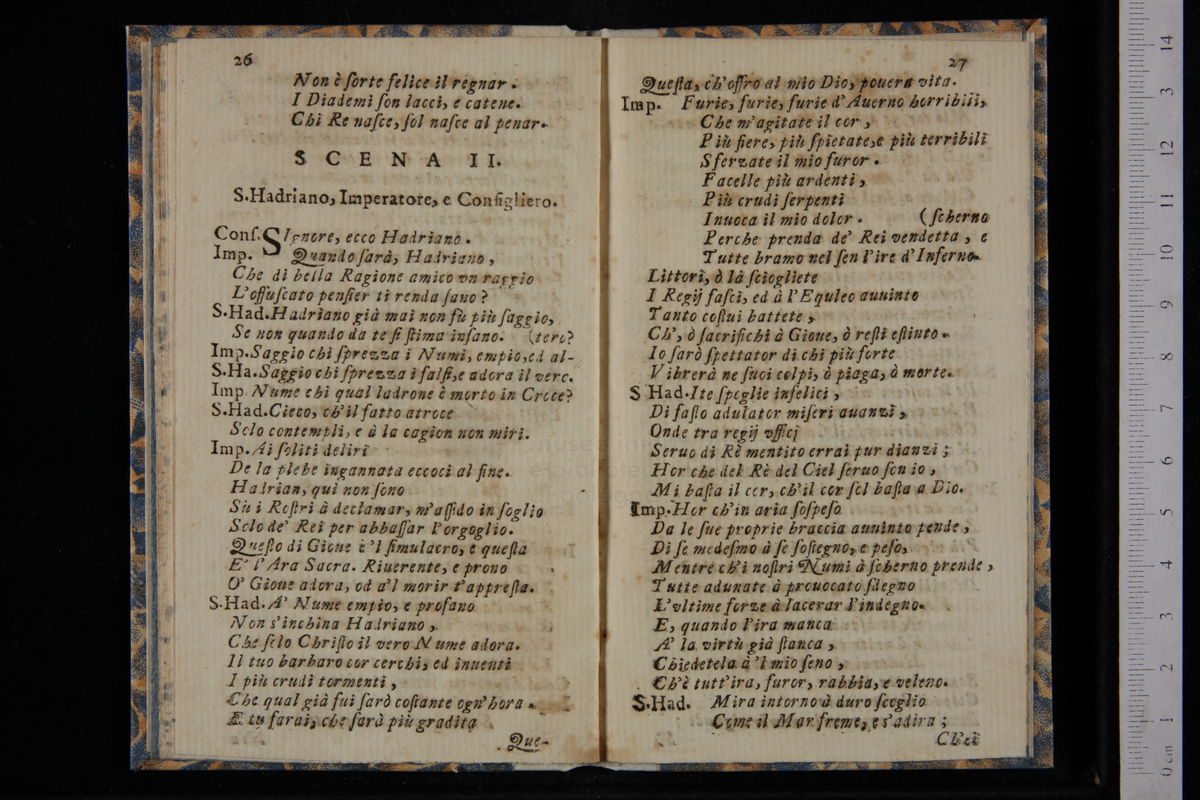 26
Non è ſorte felice il regnar.
I Diademi ſon lacci, e catene.
Chi Re naſce, ſol naſce al penar.
SCENA II.
S.Hadriano, Imperatore, e Conſigliero.
Conſ. SIgnore, ecco Hadriano.
Imp. Quando ſarà, Hadriano,
Che di bella Ragione amico vn raggio
L'offuſcato penſier ti renda ſano?
S.Had. Hadriano già mai non fù più ſaggio,
Se non quando da te ſi ſtima inſano. (tero?
Imp. Saggio chi ſprezza i Numi, empio, ed al-
S.Ha. Saggio chi ſprezza i falſi, e adora il vero.
Imp. Nume chi qual ladrone è morto in Croce?
S.Had. Cieco, ch'il fatto atroce
Solo contempli, e à la cagion non miri.
Imp. Ai ſoliti deliri
De la plebe ingannata eccoci al fine.
Hadrian, quì non ſono
Sù i Roſtri à declamar, m'aſſido in ſoglio
Solo de' Rei per abbaſſar l'orgoglio.
Queſto di Gioue è 'l ſimulacro, e queſta
E' l'Ara Sacra. Riuerente, e prono
O' Gioue adora, od a'l morir t'appreſta.
S.Had. A' Nume empio, e profano
Non s'inchina Hadriano,
Che ſolo Chriſto il vero Nume adora.
Il tuo barbaro cor cerchi, ed inuenti
I più crudi tormenti,
Che qual già fui ſarò coſtante ogn'hora.
E tu farai, che ſarà più gradita
Que-
27
Queſta, ch'offro al mio Dio, pouera vita.
Imp. Furie, furie, furie d'Auerno horribili,
Che m'agitate il cor,
Più fiere, più ſpietate, e più terribili
Sferzate il mio furor.
Facelle più ardenti,
Più crudi ſerpenti
Inuoca il mio dolor. (ſcherno
Perche prenda de' Rei vendetta, e
Tutte bramo nel ſen l'ire d'Inferno.
Littori, ò là ſciogliete
I Regij faſci, ed à l'Equleo auuinto
Tanto coſtui battete,
Ch', ò ſacrifichi à Gioue, ò reſti eſtinto.
Io ſarò ſpettator di chi più forte
Vibrerà ne ſuoi colpi, ò piaga, ò morte.
S Had. Ite ſpoglie infelici,
Di faſto adulator miſeri auanzi,
Onde tra regij vfficj
Seruo di Rè mentito errai pur dianzi;
Hor che del Rè del Ciel ſeruo ſon io,
Mi baſta il cor, ch'il cor ſol baſta a Dio.
Imp. Hor ch'in aria ſoſpeſo
Da le ſue proprie braccia auuinto pende,
Di ſe medeſmo à ſe ſoſtegno, e peſo,
Mentre ch'i noſtri Numi à ſcherno prende,
Tutte adunate à prouocato ſdegno
L'vltime forze à lacerar l'indegno.
E, quando l'ira manca
A' la virtù già ſtanca,
Chiedetela à 'l mio ſeno,
Ch'è tutt'ira, furor, rabbia, e veleno.
S.Had. Mira intorno à duro ſcoglio
Come il Mar freme, e s'adira;